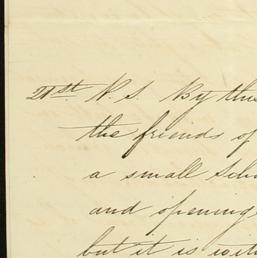 21st. P. S. By this
the friends of
a small Scho
and opening
but it is with